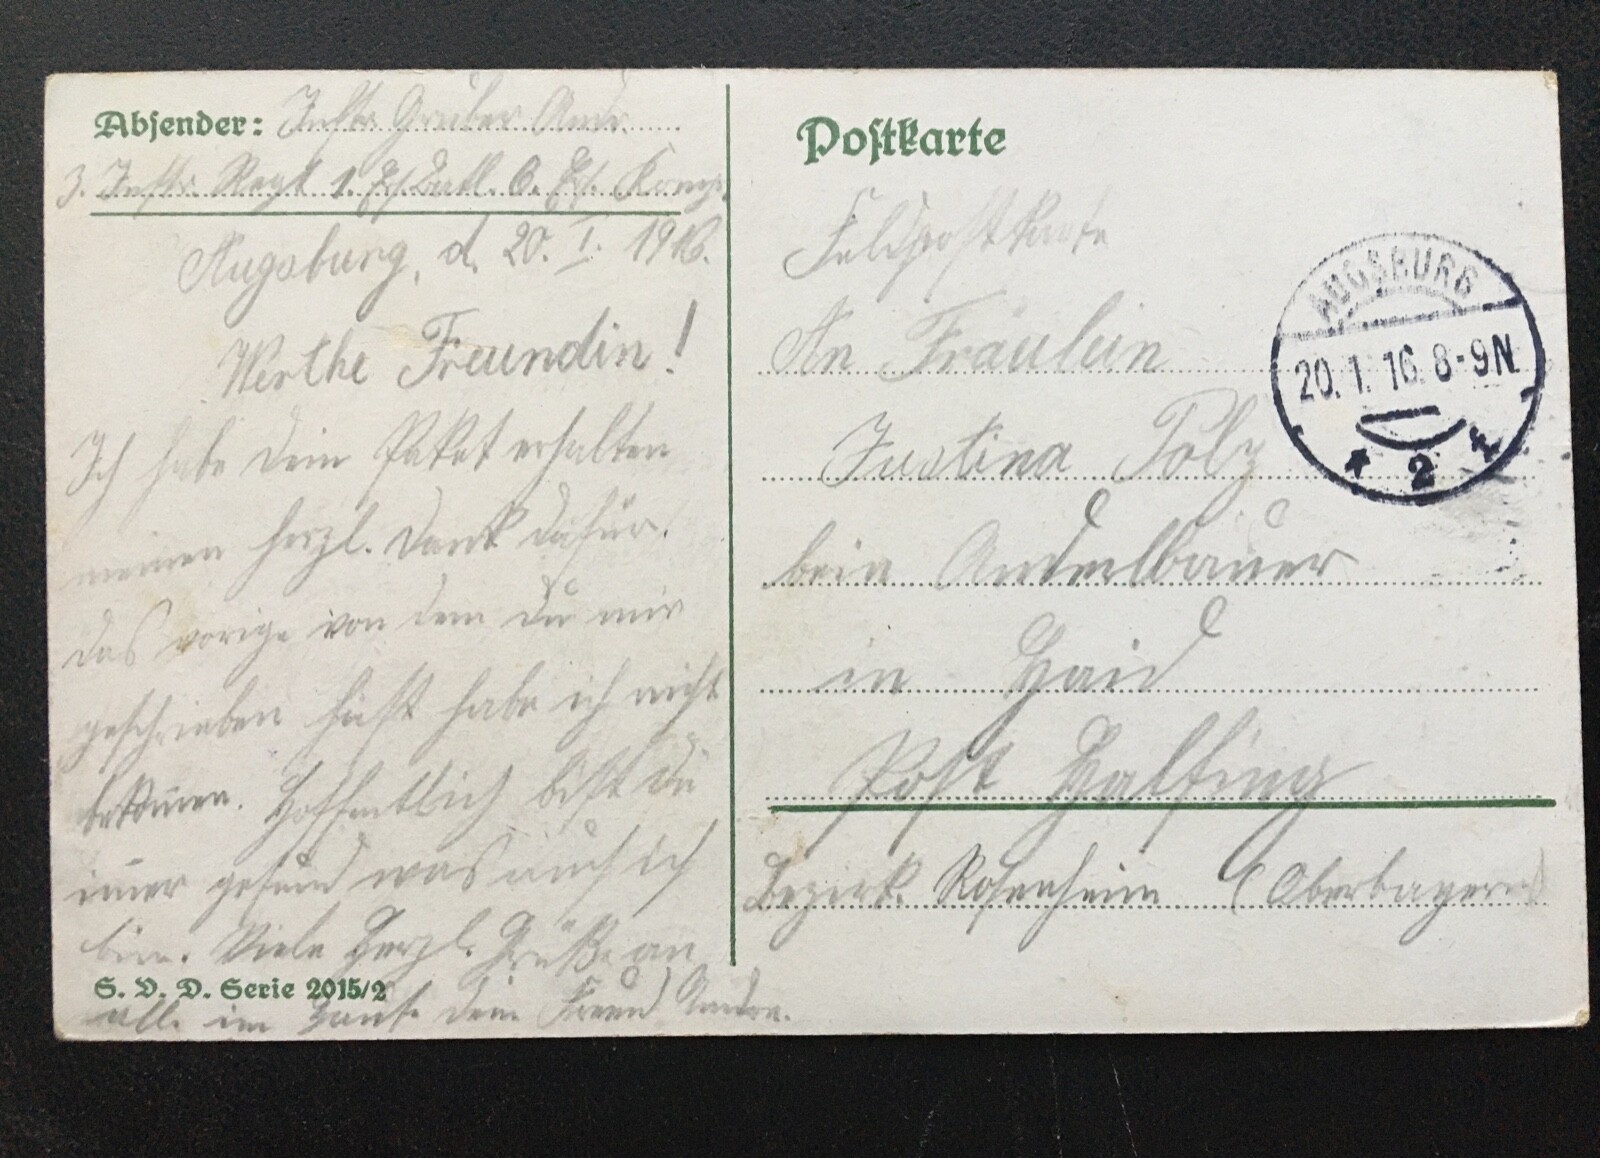 Absender: Inftr. Gruber Andr.
3. Inftr. Regt 1. Ers. Batl. 6. Ers. Komp.
Augsburg, d. 20. I. 1916.
Werthe Freundin!
Ich habe dein Paket erhalten
meinen herzl. Dank dafür.
das vorige von dem du mir
geschrieben hast habe ich nicht
bekom̄en. Hoffentlich bist du
im̄er gesund was auch ich
bin. Viele herzl. Grüße an
alle im Hause dein Freund Andre.
S. V. D. Serie 2015/2
Postkarte
Feldpostkarte
An Fräulein
Justina Polz
bein Andrelbauer
in Haid
Post Halfing
Bezirk. Rosenheim (Oberbayern)
AUGSBURG
20. 1. 16. 8-9N
* 2 *